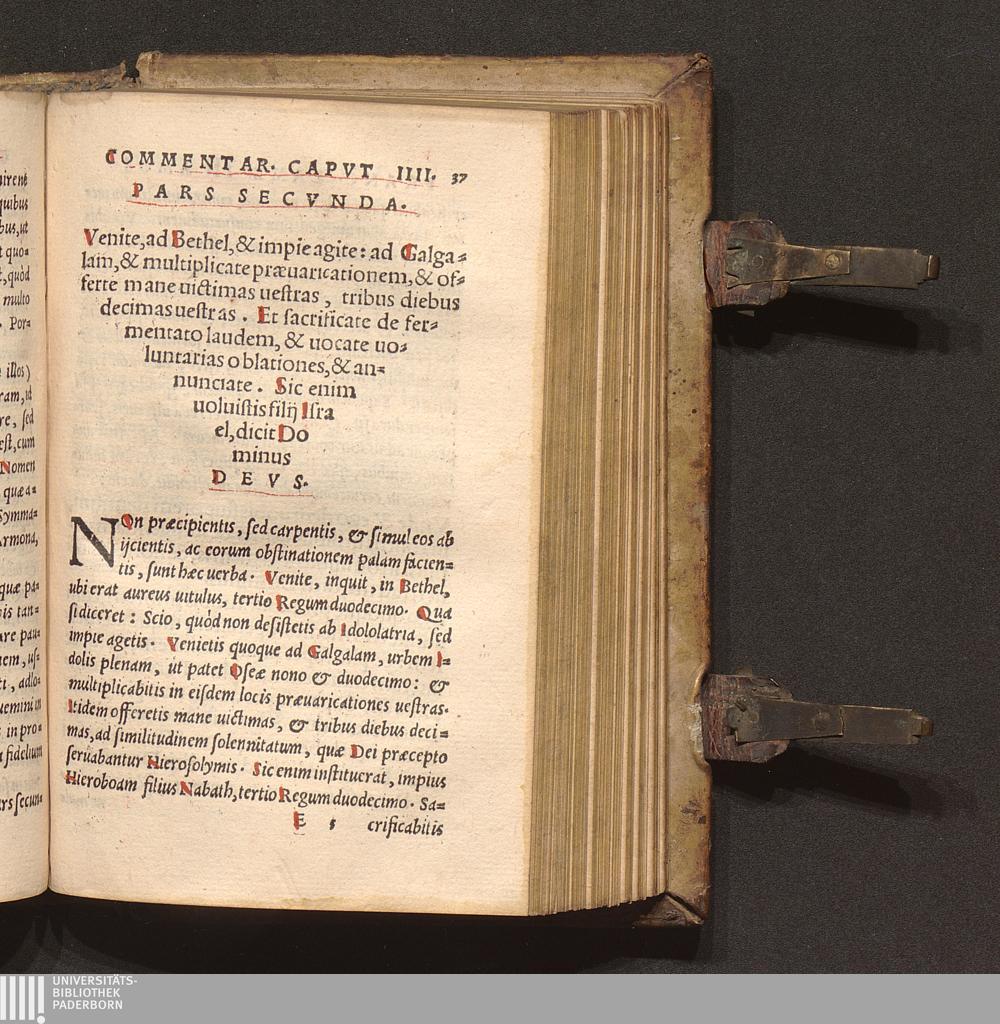 COMMENTAR. CAPVT IIII. 37
PARS SECVNDA.
Venite, ad Bethel, & impie agite: ad Galga=
lam, & multiplicate præuaricationem, & of=
ferte mane uictimas uestras, tribus diebus
decimas uestras. Et sacrificate de fer=
mentato laudem, & uocate uo=
luntarias oblationes, & an=
nunciate. Sic enim
uoluistis filij Isra
el, dicit Do
minus
DEVS.
NOn præcipientis, sed carpentis, & simul eos ab
ijcientis, ac eorum obstinationem palam facien=
tis, sunt hæc uerba. Venite, inquit, in Bethel,
ubi erat aureus uitulus, tertio Regum duodecimo. Qua
si diceret: Scio, quòd non desistetis ab Idololatria, sed
impie agetis. Venietis quoque ad Galgalam, urbem I=
dolis plenam, ut patet Oseæ nono & duodecimo: &
multiplicabitis in eisdem locis præuaricationes uestras.
Itidem offeretis mane uictimas, & tribus diebus deci=
mas, ad similitudinem solennitatum, quæ Dei præcepto
seruabantur Hierosolymis. Sic enim instituerat, impius
Hieroboam filius Nabath, tertio Regum duodecimo. Sa=
E 5 crificabitis
quibus
bus, ut
t quo=
quòd
multo
. Por=
illos)
ram, id
re, sed
est, cum
Nomen
quæ a=
Symma=
quæ pa=
tan=
fidelium
rs secun=
UNIVERSITÄTS-
BIBLIOTHEK
PADERBORN